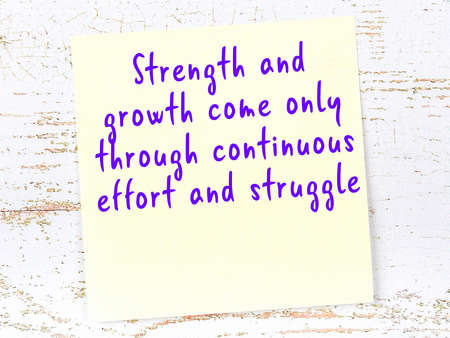 Strength and
growth come only
through continuous
effort and struggle